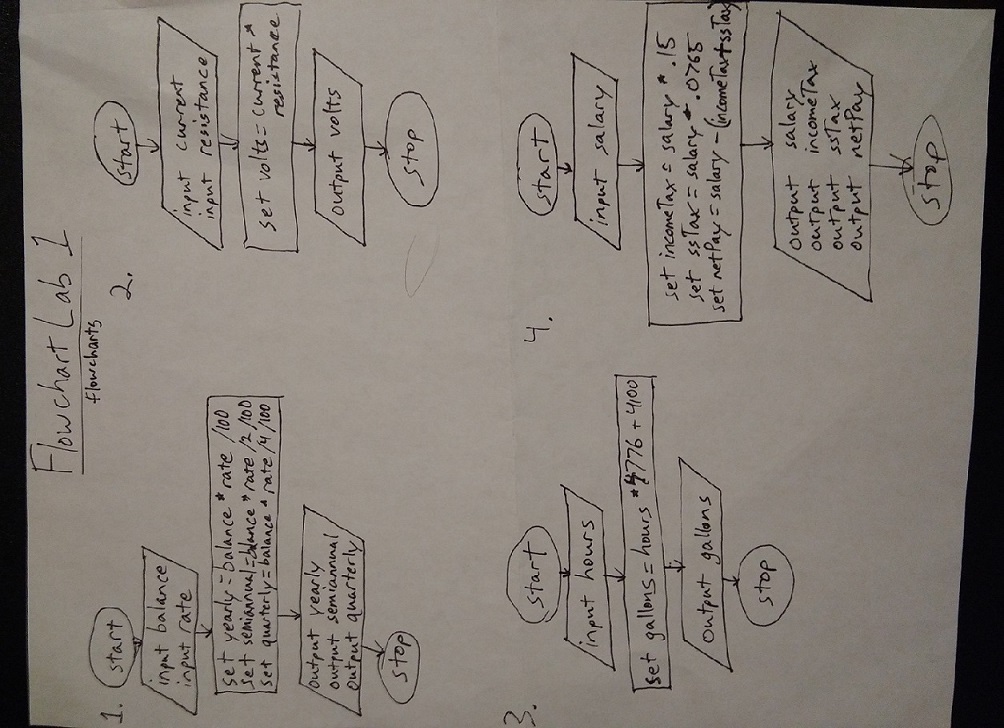 Flowchart Lab 1
flowcharts
1.
start
input balance
input rate
set yearly = balance * rate /100
set semiannual = blance * rate /2 /100
set quarterly = balance * rate /4 /100
output yearly
output semiannual
output quarterly
stop
2.
start
input current
input resistance
set volts = current *
resistance
output volts
stop
3.
start
input hours
set gallons = hours * 4776 + 4100
output gallons
stop
4.
start
input salary
set incomeTax = salary * .15
set ssTax = salary * .0765
set netPay = salary - (incomeTax + ssTax)
output salary
output incomeTax
output ssTax
output netPay
stop